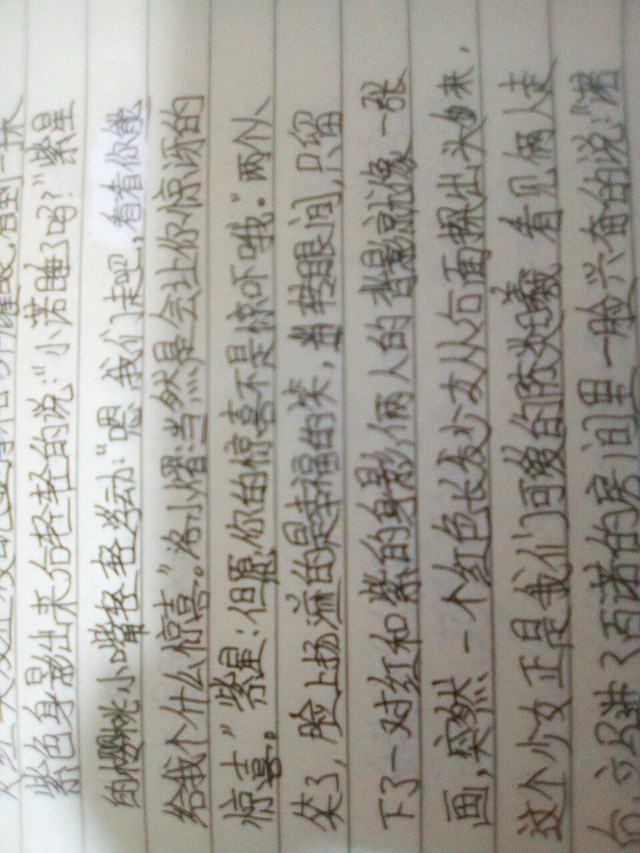 紫色身影出来后轻轻的说:“小诺睡了吗?”紫星
的樱桃小嘴轻轻努动:“嗯,我们走吧,看看你能
给我个什么惊喜。”洛小熠:当然是会让你惊讶的
惊喜。”紫星:但愿,你的惊喜不是惊吓哦。”两个人
笑了,脸上扬溢的是幸福的笑,当转眼间,只留
下了一对红和紫的身影俩人的背影就像一张
画,突然,一个红色长发少女从后面探出头出来,
这个少女正是我们可爱的陈处曦,看见俩人走
后,立马进了百诺的房间里一脸兴奋的说:“诺